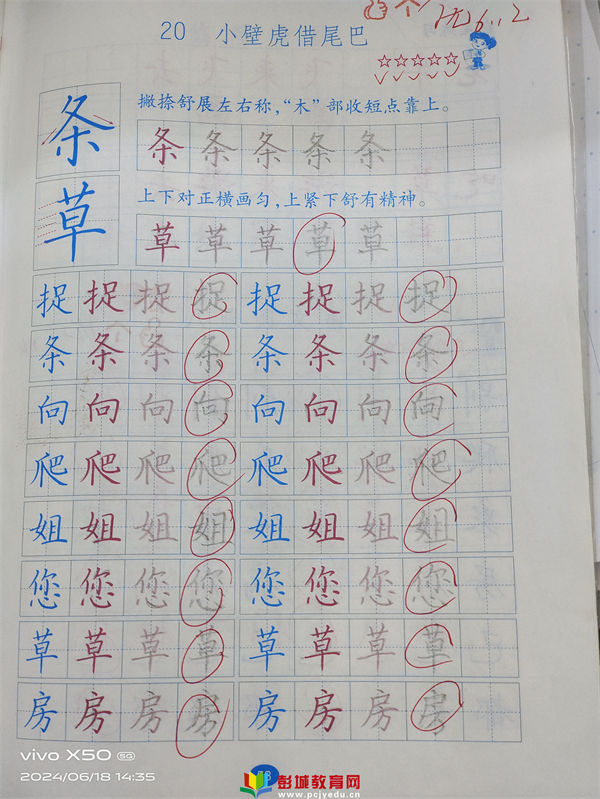 20 小壁虎借尾巴
优 6..2
☆☆☆☆☆
条
撇捺舒展左右称，“木”部收短点靠上。
条 条 条 条 条
草
上下对正横画匀，上紧下舒有精神。
草 草 草 草 草
捉 捉 捉 捉 捉 捉 捉 捉
条 条 条 条 条 条 条 条
向 向 向 向 向 向 向 向
爬 爬 爬 爬 爬 爬 爬 爬
姐 姐 姐 姐 姐 姐 姐 姐
您 您 您 您 您 您 您 您
草 草 草 草 草 草 草 草
房 房 房 房 房 房 房 房
vivo X50 5G
2024/06/18 14:35
彭城教育网
www.pcjyedu.cn